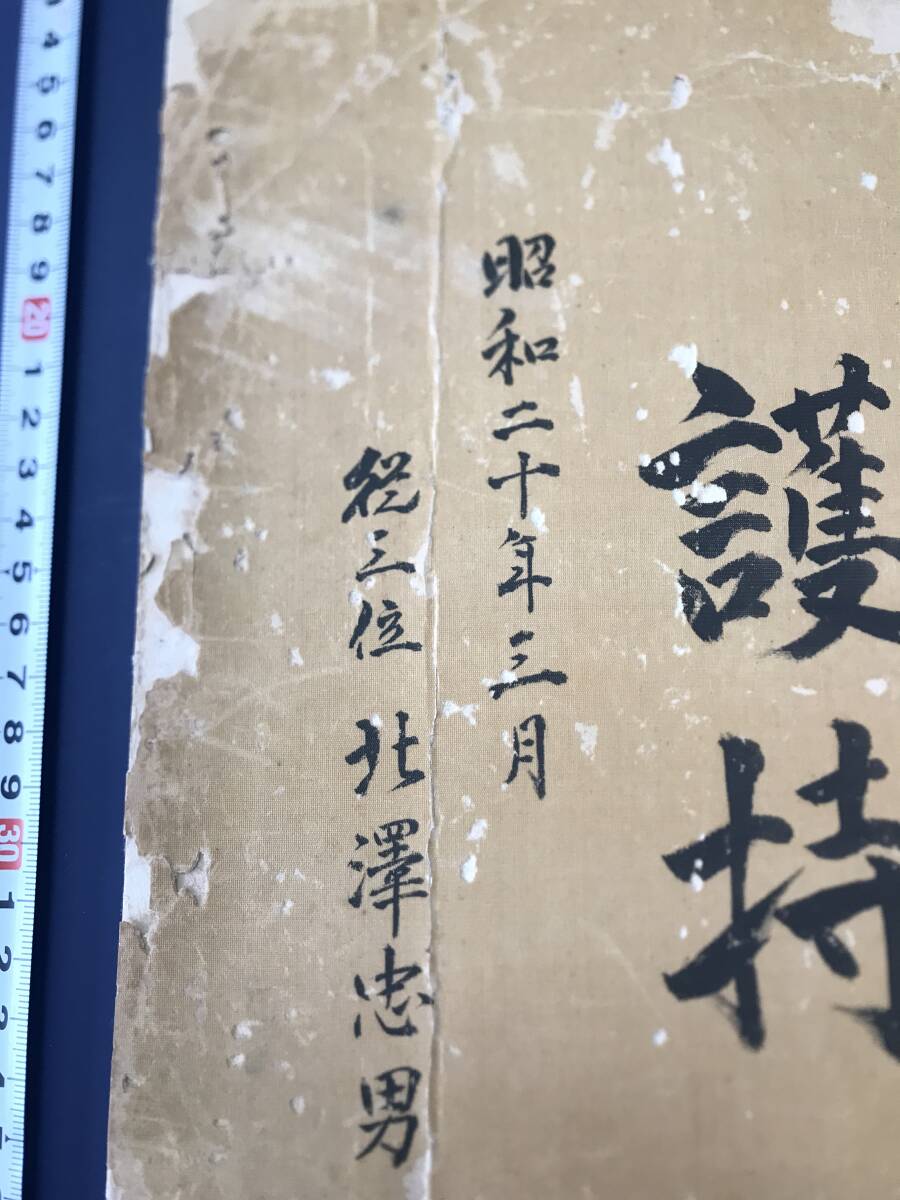 護持
昭和二十年三月
從三位 北澤忠男
4 5 6 7 8 9 20 1 2 3 4 5 6 7 8 9 30 1 2 3 4